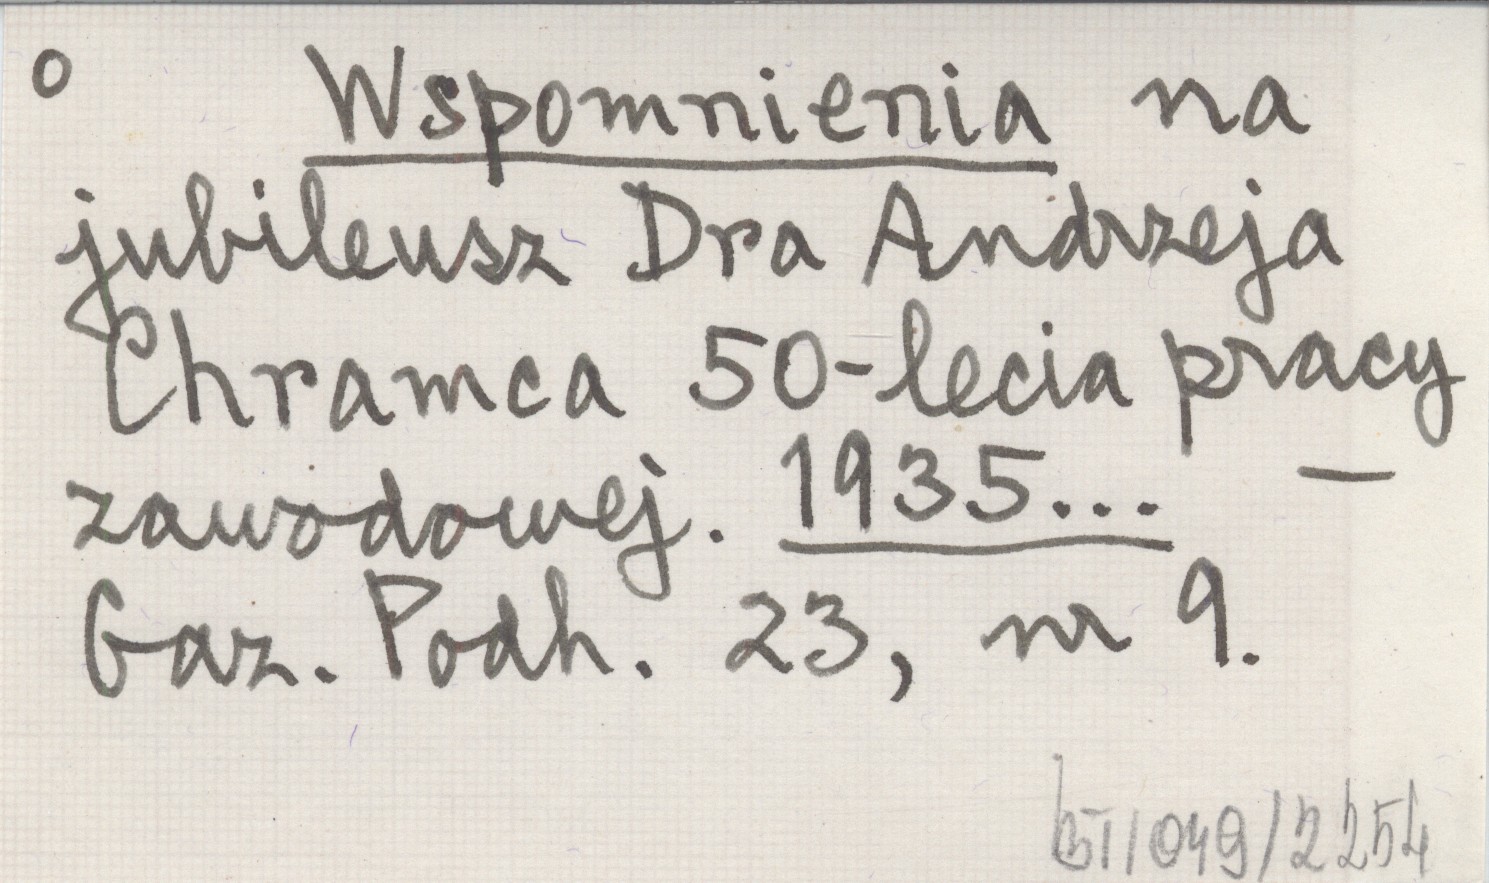 o Wspomnienia na
jubileusz Dra Andrzeja
Chramca 50-lecia pracy
zawodowej. 1935... —
Gaz. Podh. 23, nr 9.
/049/2254